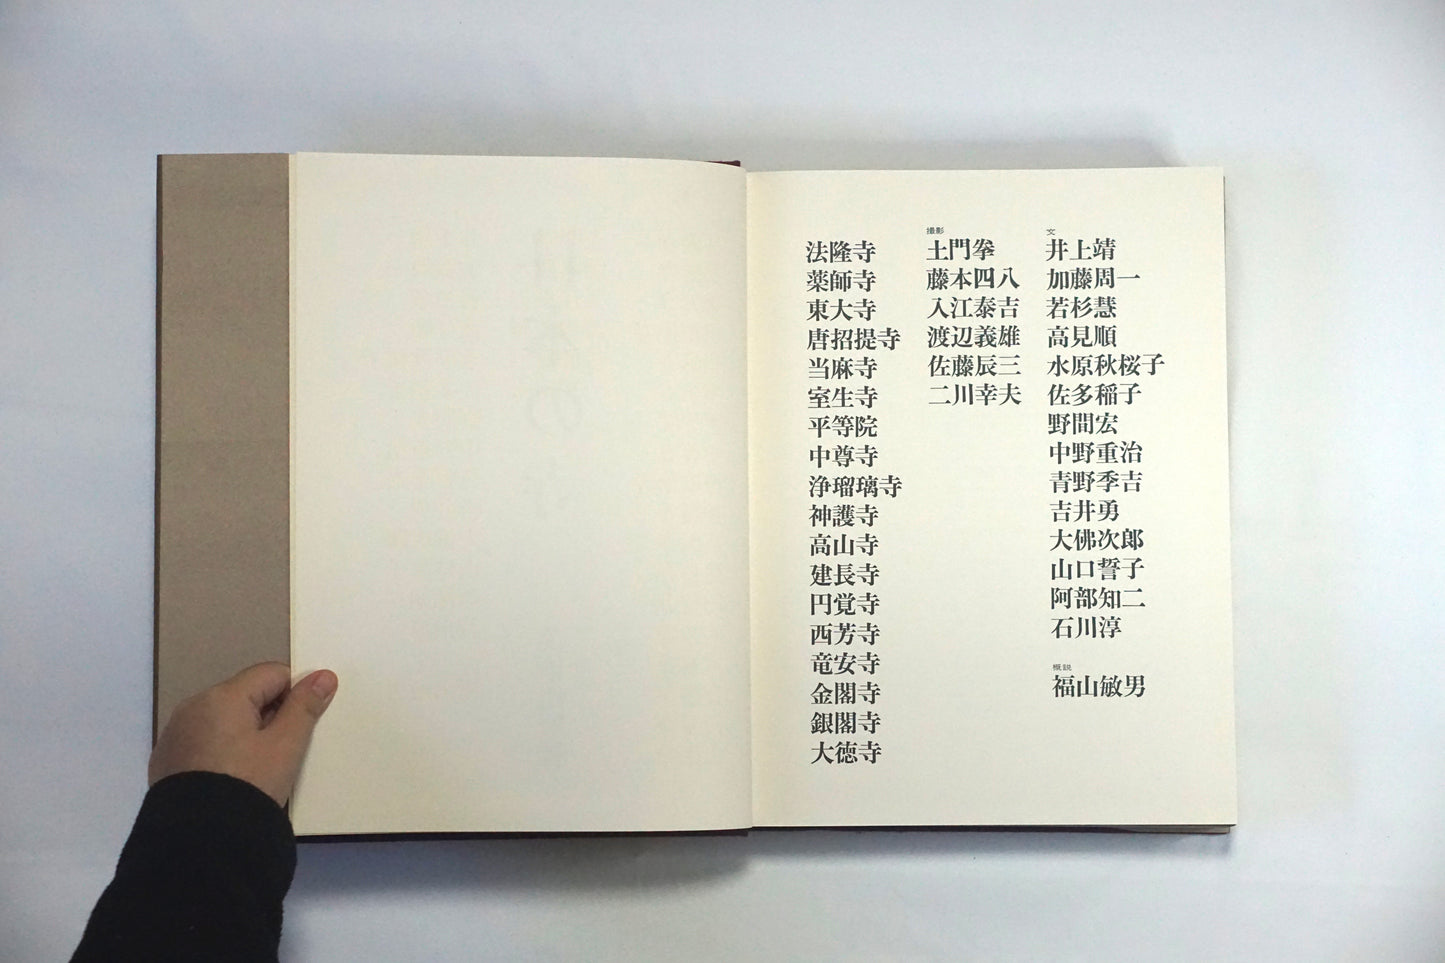 法隆寺
薬師寺
東大寺
唐招提寺
当麻寺
室生寺
平等院
中尊寺
浄瑠璃寺
神護寺
高山寺
建長寺
円覚寺
西芳寺
竜安寺
金閣寺
銀閣寺
大徳寺
撮影
土門拳
藤本四八
入江泰吉
渡辺義雄
佐藤辰三
二川幸夫
文
井上靖
加藤周一
若杉慧
高見順
水原秋桜子
佐多稲子
野間宏
中野重治
青野季吉
吉井勇
大佛次郎
山口誓子
阿部知二
石川淳
概説
福山敏男